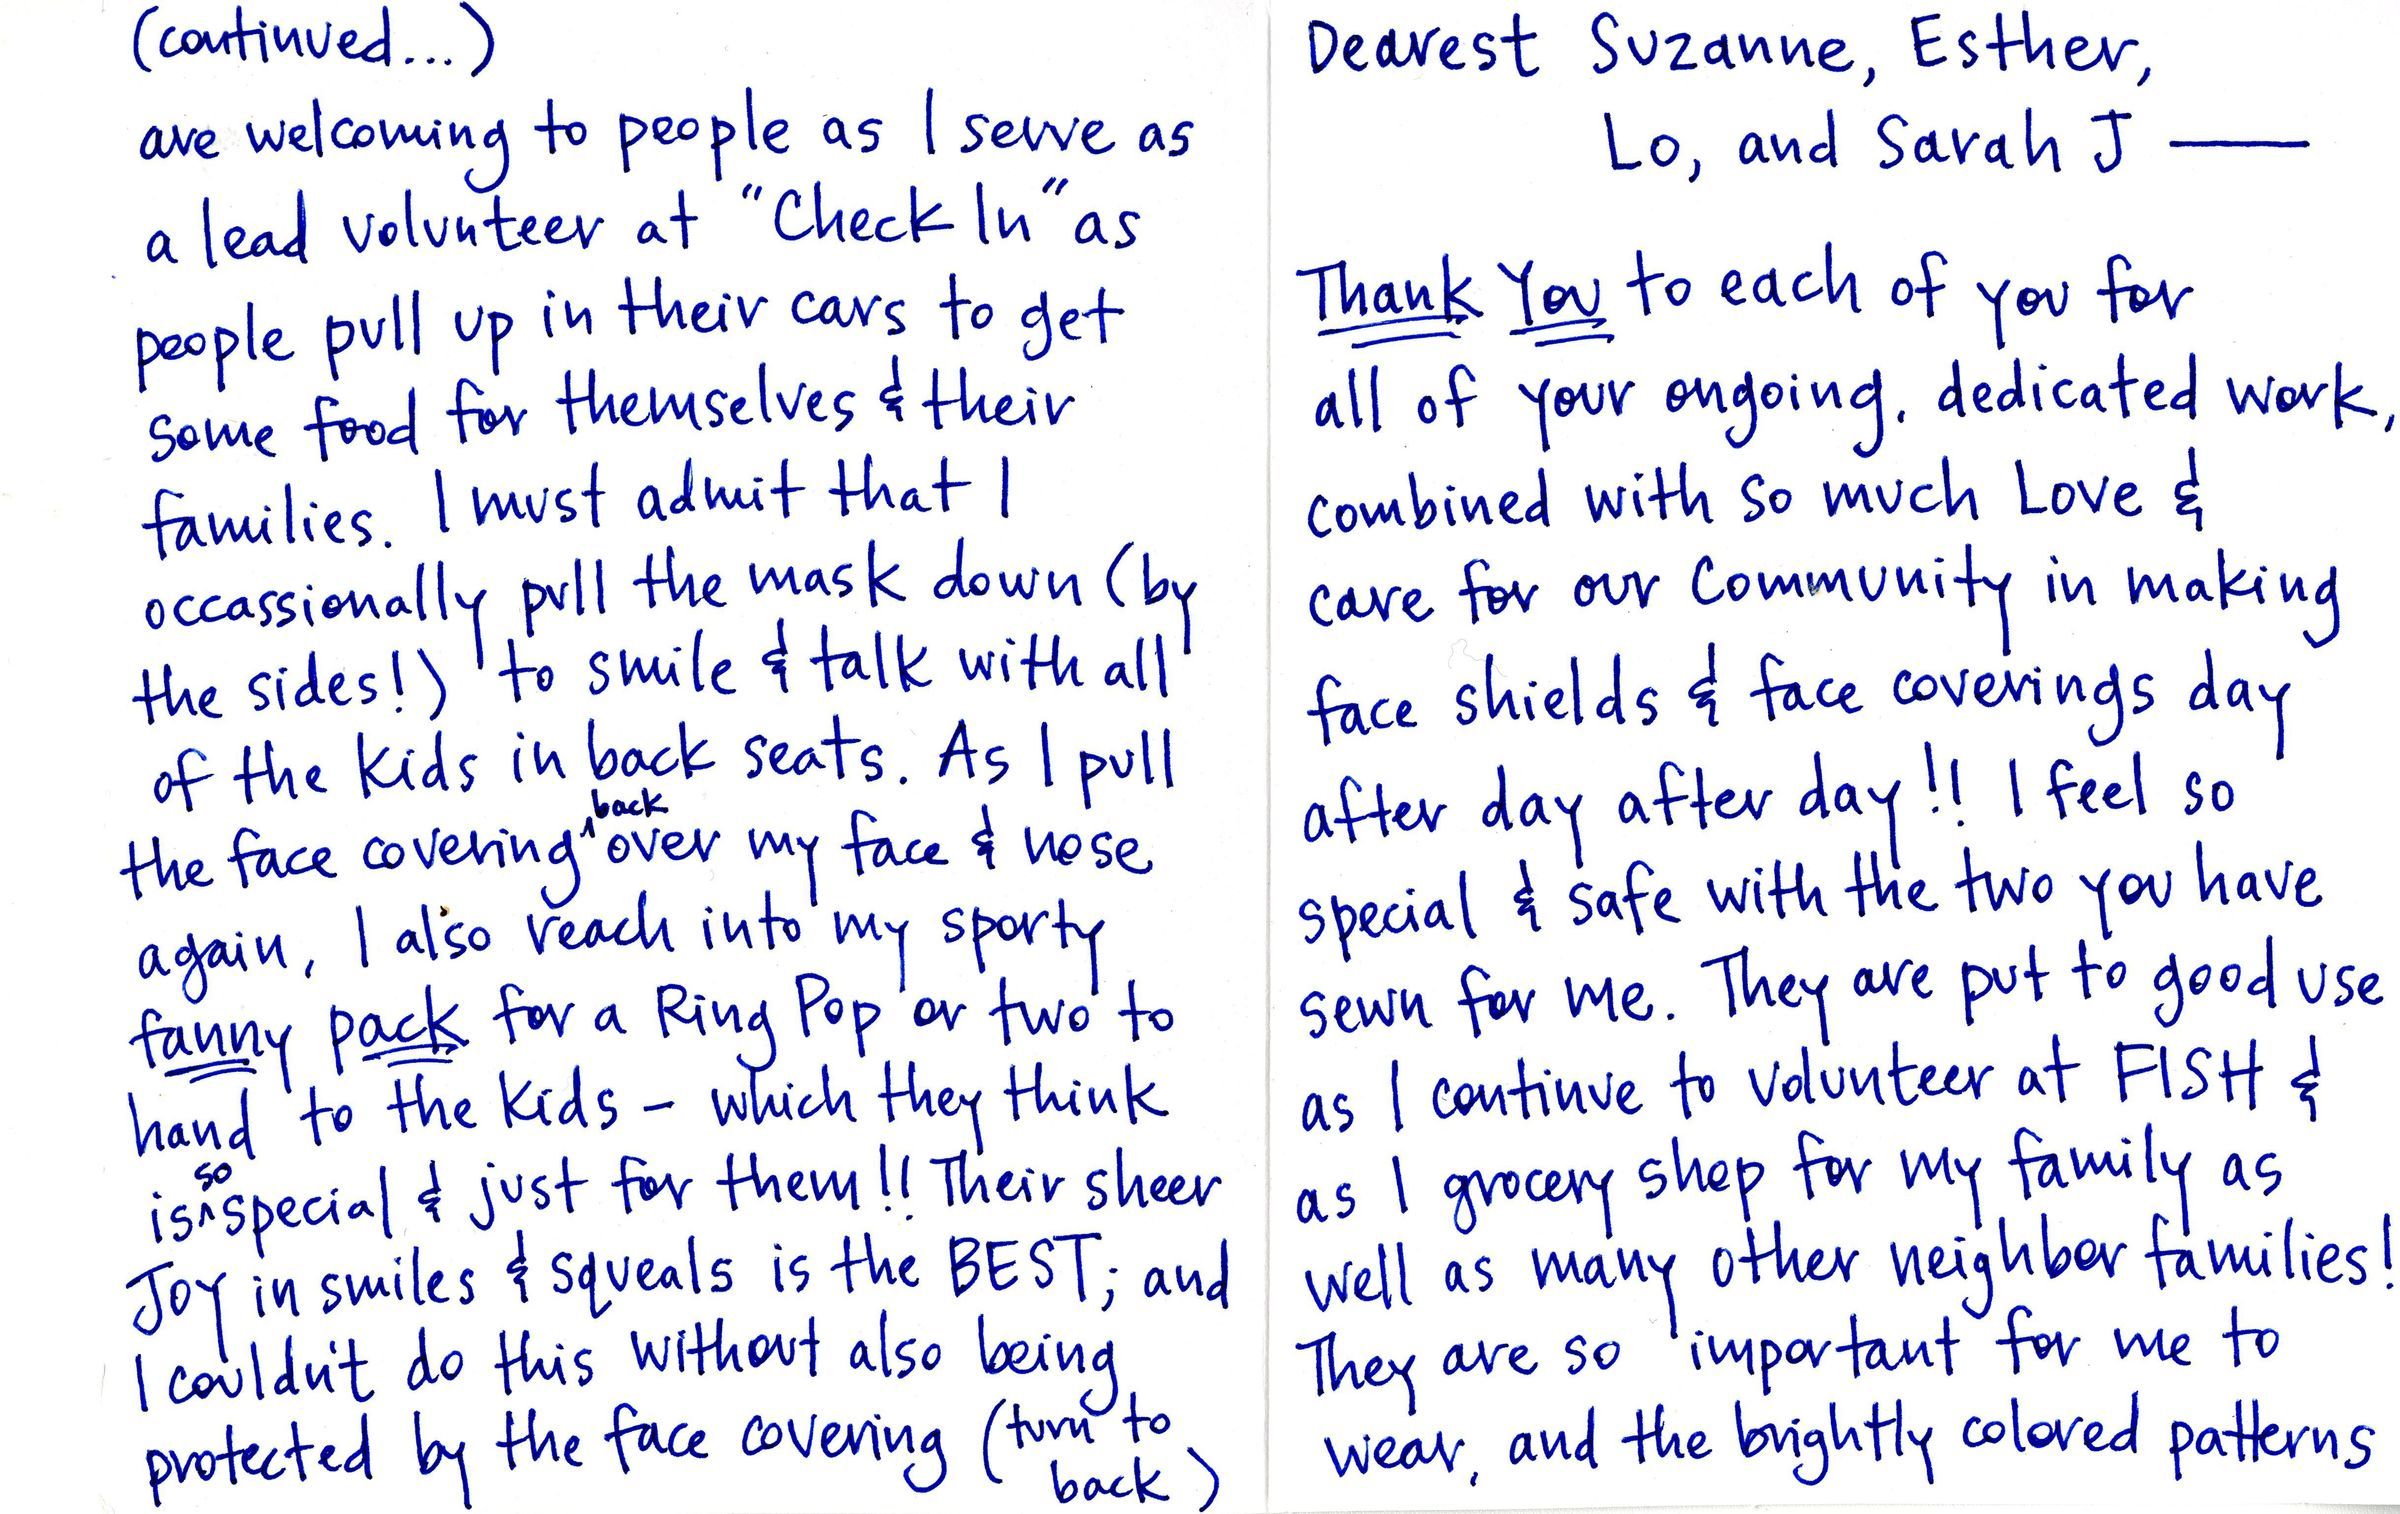 Dearest Suzanne, Esther,
Lo, and Sarah J —
Thank You to each of you for
all of your ongoing, dedicated work,
combined with so much Love &
care for our Community in making
face shields & face coverings day
after day after day!! I feel so
special & safe with the two you have
sewn for me. They are put to good use
as I continue to volunteer at FISH &
as I grocery shop for my family as
well as many other neighbor families!
They are so important for me to
wear, and the brightly colored patterns
(continued...)
are welcoming to people as I serve as
a lead volunteer at "Check In" as
people pull up in their cars to get
some food for themselves & their
families. I must admit that I
occassionally pull the mask down (by
the sides!) to smile & talk with all
of the kids in back seats. As I pull
the face covering back over my face & nose
again, I also reach into my sporty
fanny pack for a Ring Pop or two to
hand to the kids - which they think
is so special & just for them!! Their sheer
JOY in smiles & squeals is the BEST; and
I couldn't do this without also being
protected by the face covering (turn to
back)